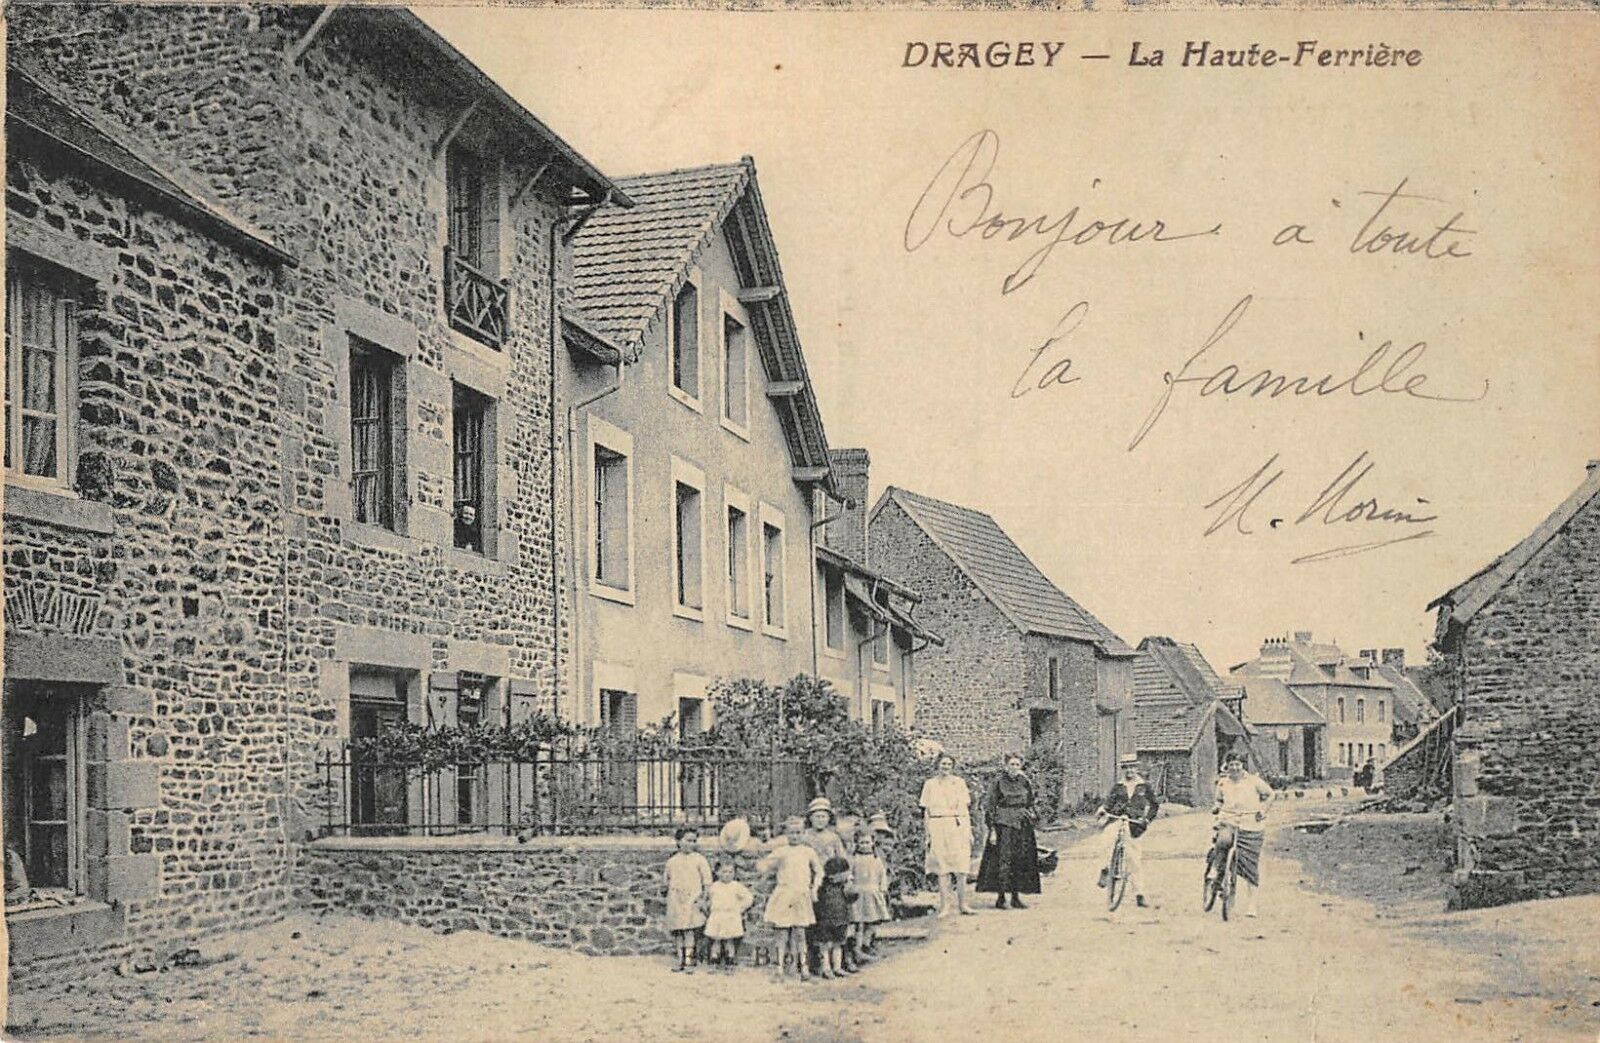 DRAGEY — La Haute-Ferrière
Bonjour à toute
la famille
M. Morin